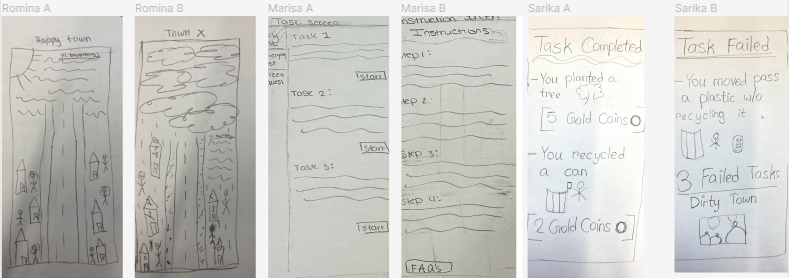 Romina A
Happy town
Romina B
Town X
Marisa A
Task screen
Task 1
Start
Task 2:
Start
Task 3:
Start
Marisa B
Instructions
Step 3:
Step 4:
FAQ's
Sarika A
Task Completed
- You planted a
tree
[5 Gold Coins
- You recycled
a can
[2 Gold Coins
Sarika B
Task Failed
- You moved pass
a plastic w/o
recycling it.
3 Failed Tasks
Dirty Town